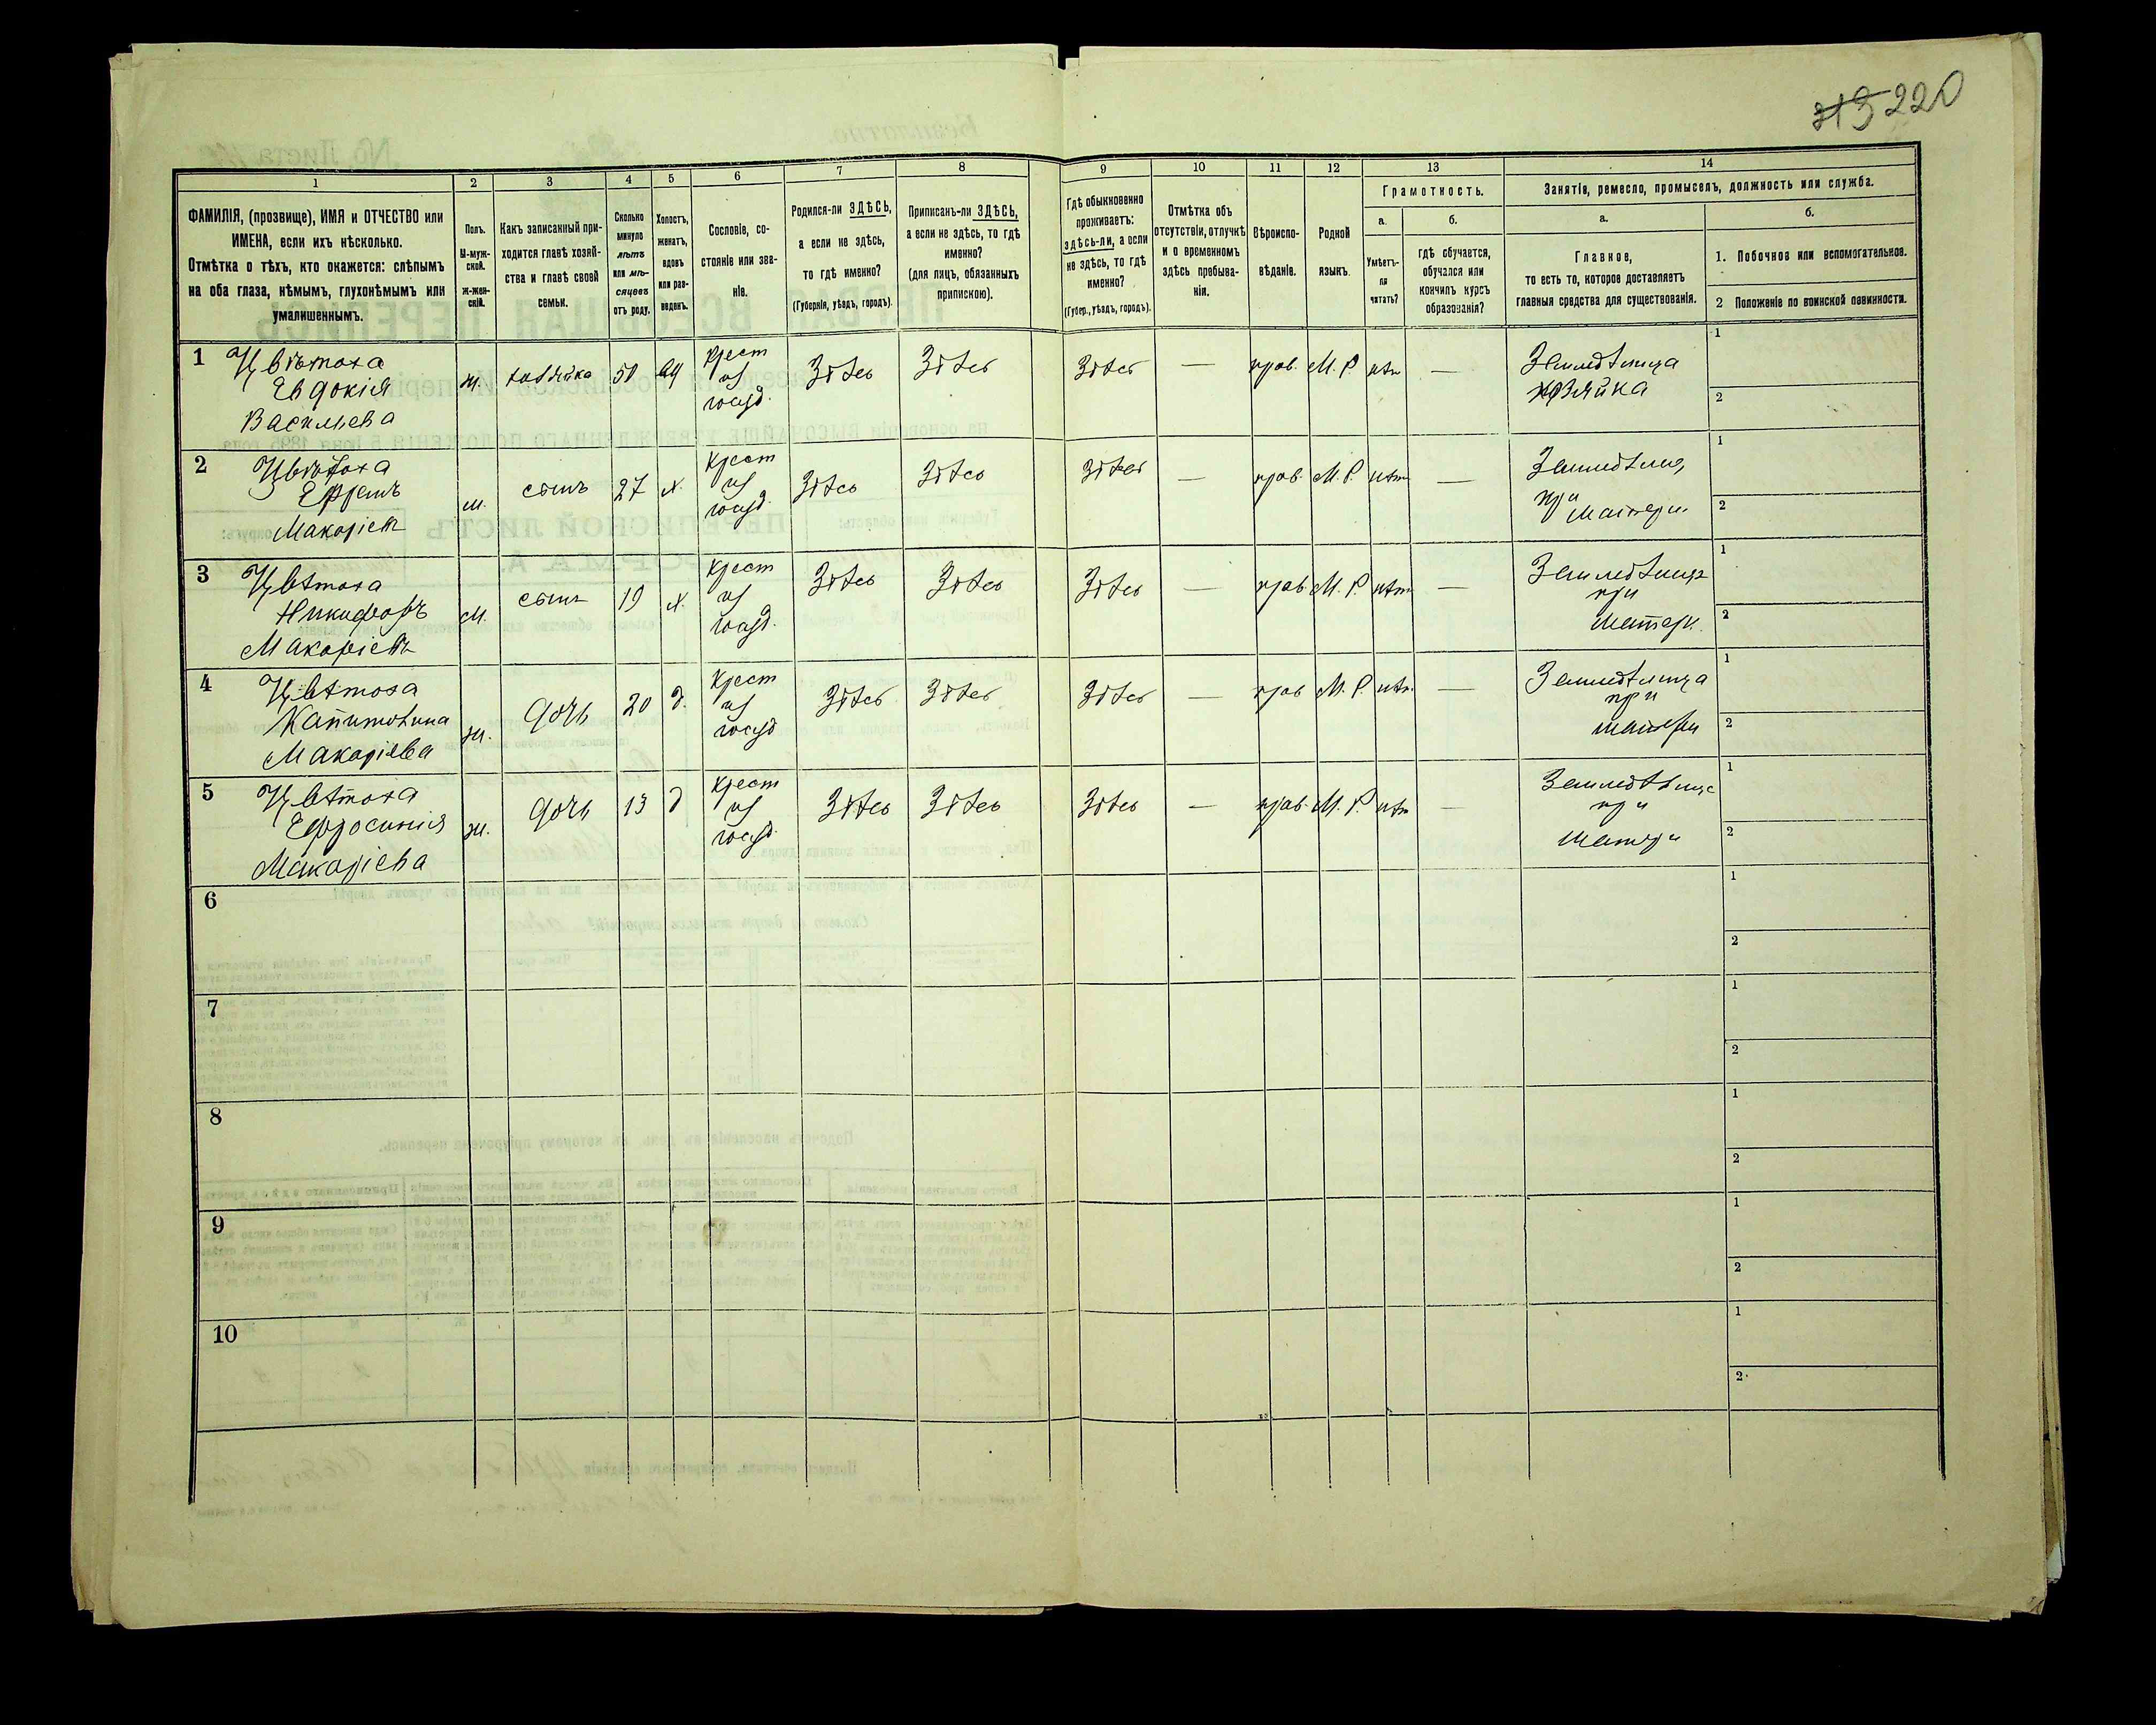 319 220
1 2 3 4 5 6 7 8 9 10 11 12 13 14
ФАМИЛІЯ, (прозвище), ИМЯ и ОТЧЕСТВО или
ИМЕНА, если ихъ нѣсколько.
Отмѣтка о тѣхъ, кто окажется: слѣпымъ
на оба глаза, нѣмымъ, глухонѣмымъ или
умалишеннымъ.
Полъ.
М-муж-
ской.
Ж-жен-
скій.
Какъ записанный при-
ходится главѣ хозяй-
ства и главѣ своей
семьи.
Сколько
минуло
лѣтъ
или мѣ-
сяцевъ
отъ роду.
Холостъ,
женатъ,
вдовъ
или раз-
веденъ.
Сословіе, со-
стояніе или зва-
ніе.
Родился-ли ЗДѢСЬ,
а если не здѣсь,
то гдѣ именно?
(Губернія, уѣздъ, городъ).
Приписанъ-ли ЗДѢСЬ,
а если не здѣсь, то гдѣ
именно?
(для лицъ, обязанныхъ
припискою).
Гдѣ обыкновенно
проживаетъ:
здѣсь-ли, а если
не здѣсь, то гдѣ
именно?
(Губер., уѣздъ, городъ).
Отмѣтка объ
отсутствіи, отлучкѣ
и о временномъ
здѣсь пребыва-
ніи.
Вѣроиспо-
вѣданіе.
Родной
языкъ.
Грамотность.
а.
Умѣетъ-
ли
читать?
б.
гдѣ обучается,
обучался или
кончилъ курсъ
образованія?
Занятіе, ремесло, промыселъ, должность или служба.
а.
Главное,
то есть то, которое доставляетъ
главныя средства для существованія.
б.
1. Побочное или вспомогательное.
2 Положеніе по воинской повинности.
1 Цвѣтоха
Евдокія
Васильева
ж. хозяйка 50 вд
Крест
из
госуд.
Здѣсь Здѣсь Здѣсь — прав. М. Р. нѣт —
Земледѣлица
хозяйка
1
2
2 Цвѣтоха
Ефремъ
Макаріевъ
м. сынъ 27 х.
Крест
из
госуд.
Здѣсь Здѣсь Здѣсь — прав. М. Р. нѣт —
при
Матери.
1
2
3 Цвѣтоха
Никифоръ
Макаріевъ
м. сынъ 19 х.
Крест
из
госуд.
Здѣсь Здѣсь Здѣсь — прав М. Р. нѣт —
при
Матери.
1
2
4 Цвѣтоха
Капитолина
Макаріева
ж. дочь 20 д.
Крест
из
госуд
Здѣсь Здѣсь Здѣсь — прав М. Р. нѣт. —
Земледѣлица
при
матери
1
2
5 Цвѣтоха
Ефросинія
Макаріева
ж. дочь 13 д
Крест
из
госуд.
Здѣсь Здѣсь Здѣсь — прав. М. Р. нѣт —
при
Матери
1
2
6
1
2
7
1
2
8
1
2
9
1
2
10
1
2